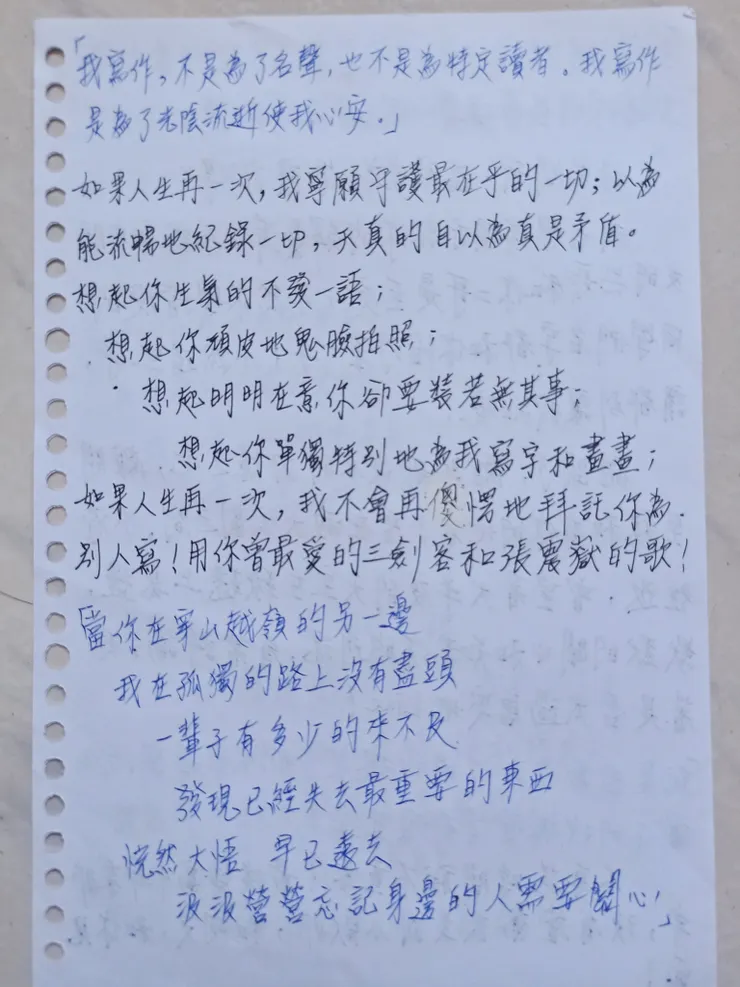 「我寫作，不是為了名聲，也不是為特定讀者。我寫作
是為了光陰流逝使我心安。」
如果人生再一次，我寧願守護最在乎的一切；以為
能流暢地紀錄一切，天真的自以為真是矛盾。
想起你生氣的不發一語；
想起你頑皮地鬼臉拍照；
想起明明在意你卻要裝若無其事；
想起你單獨特別地為我寫字和畫畫；
如果人生再一次，我不會再傻愣地拜託你為
別人寫！用你曾最愛的三劍客和張震嶽的歌！
「當你在穿山越嶺的另一邊
我在孤獨的路上沒有盡頭
一輩子有多少的來不及
發現已經失去最重要的東西
恍然大悟 早已遠去
汲汲營營忘記身邊的人需要關心」